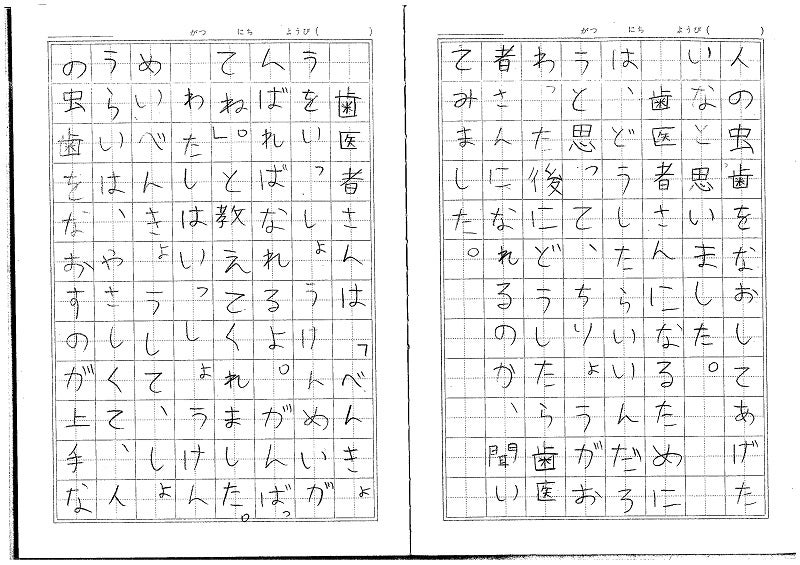 がつ　にち　ようび(　　)
人の虫歯をなおしてあげた
いなと思いました。
　歯医者さんになるために
は、どうしたらいいんだろ
うと、思って、ちりょうがお
わった後にどうしたら歯医
者さんになれるのか、聞い
てみました。
がつ　にち　ようび(　　)
　歯医者さんは「べんきょ
うをいっしょうけんめいが
んばればなれるよ。がんばっ
てね」。と教えてくれました。
　わたしはいっしょうけん
めいべんきょうして、しょ
うらいは、やさしくて、人
の虫歯をなおすのが上手な